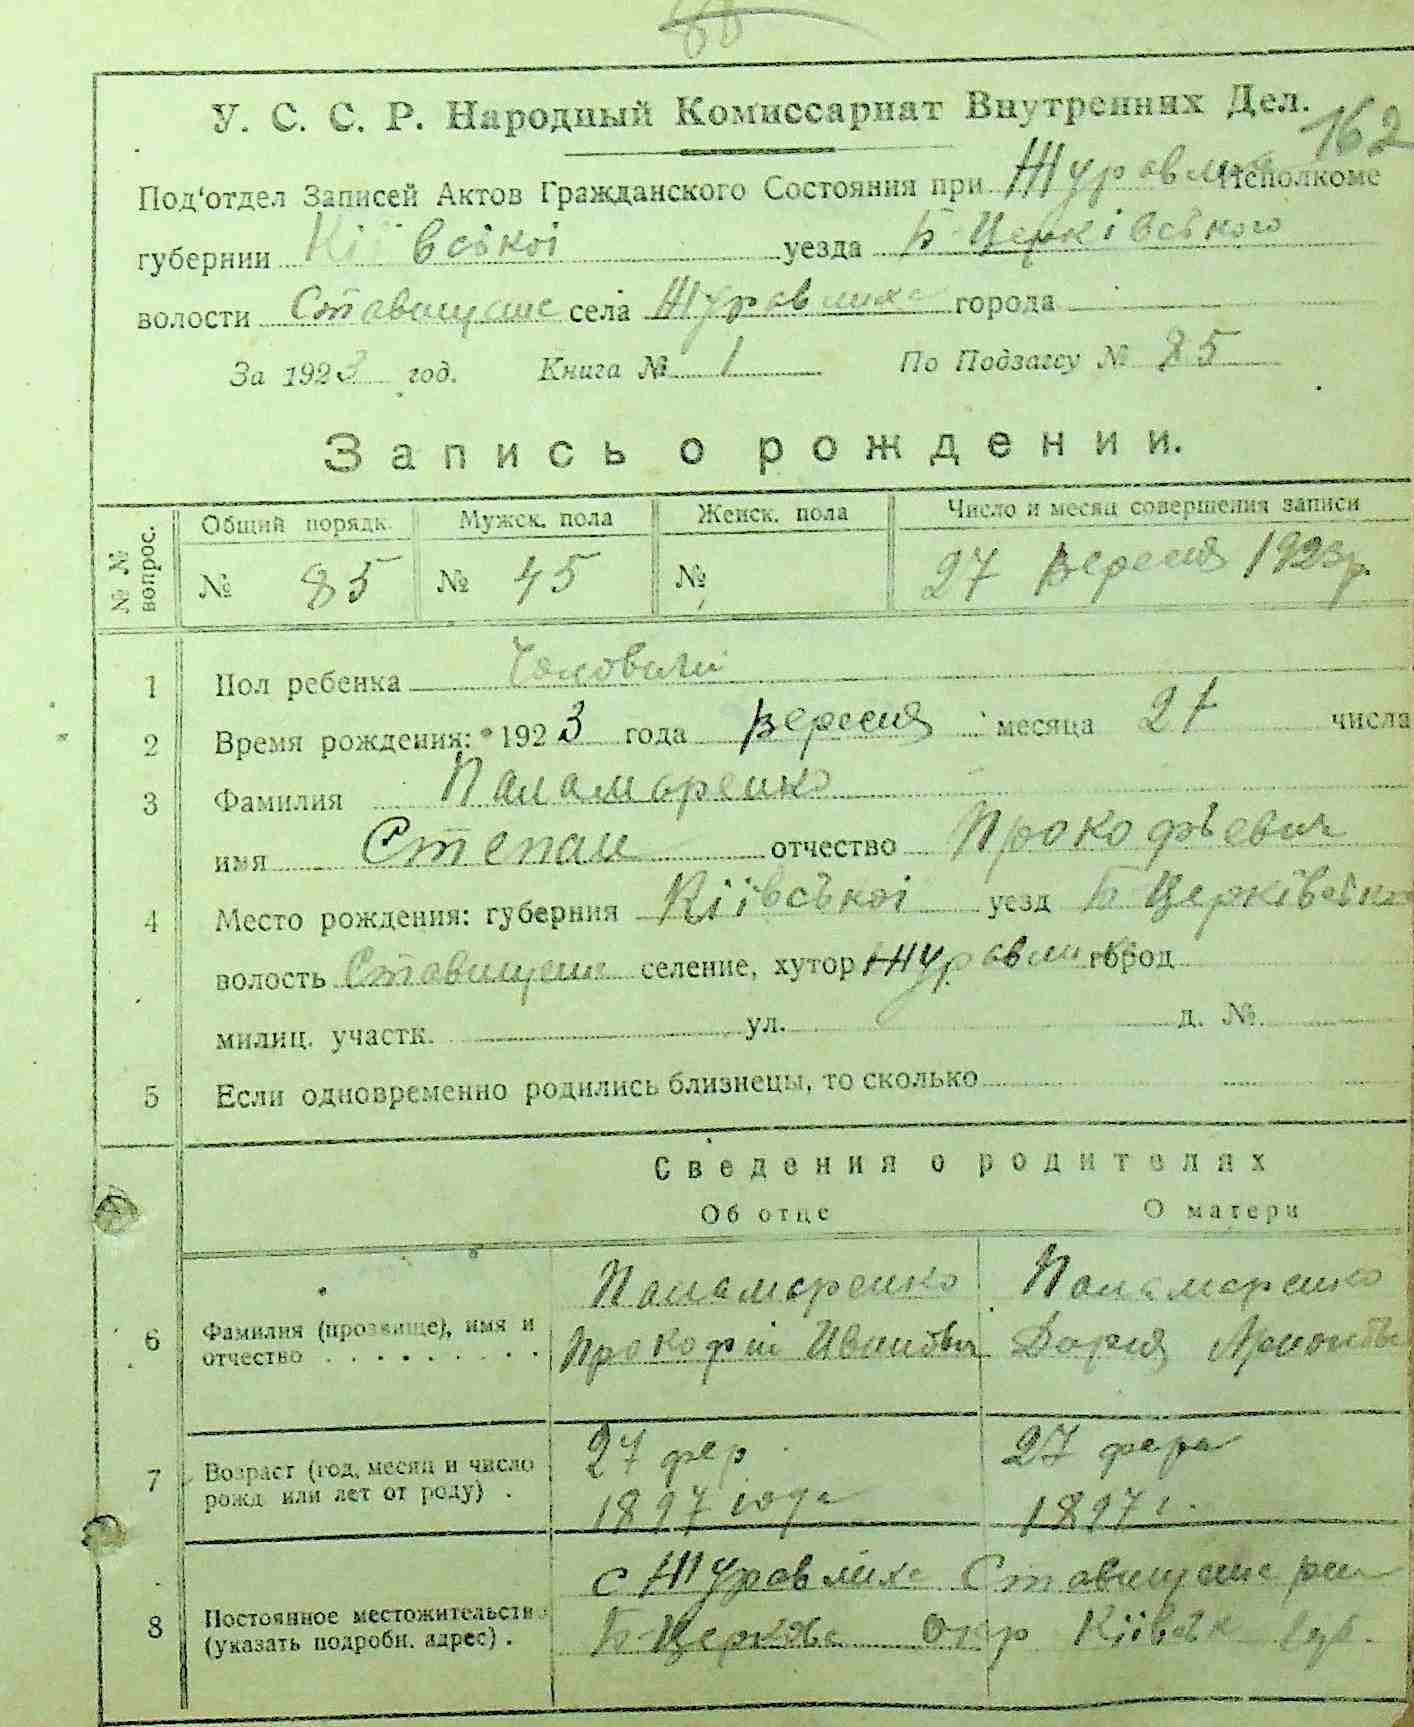 162
У. С. С. Р. Народный Комиссариат Внутренних Дел.
Под'отдел Записей Актов Гражданского Состояния при Журавли Исполкоме
губернии Кіївської уезда Б-Церківського
волости Ставищане села Журавлиха города
За 1923 год. Книга № 1 По Подзагсу № 85
Запись о рождении.
№ № вопрос. Общий порядк. Мужск. пола Женск. пола Число и месяц совершения записи
№ 85 № 45 № 27 вересня 1923р.
1 Пол ребенка Чоловичи
2 Время рождения: 1923 года вересня месяца 27 числа
3 Фамилия Паламаренко
имя Степан отчество Прокофьевич
4 Место рождения: губерния Кіївської уезд Б Церківського
волость селение, хутор Журавлиха город
милиц. участк. ул. д. №
5 Если одновременно родились близнецы, то сколько
Сведения о родителях
Об отце О матери
Паламаренко Паламаренко
6 Фамилия (прозвище), имя и отчество Прокофій Иванович Дария
7 Возраст (год, месяц и число рожд. или лет от роду) 27 фер 1897 года 27 1897 г.
с Журавлиха Ставищане
8 Постоянное местожительств (указать подробн. адрес) Б-Церковс Окр Кіівськ губ.